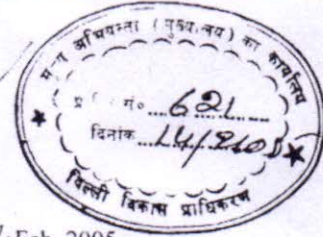 मुख्य अभियन्ता (मुख्यालय) का कार्यालय
सं० 621
दिनांक 14/2/05
दिल्ली विकास प्राधिकरण
Feb, 2005